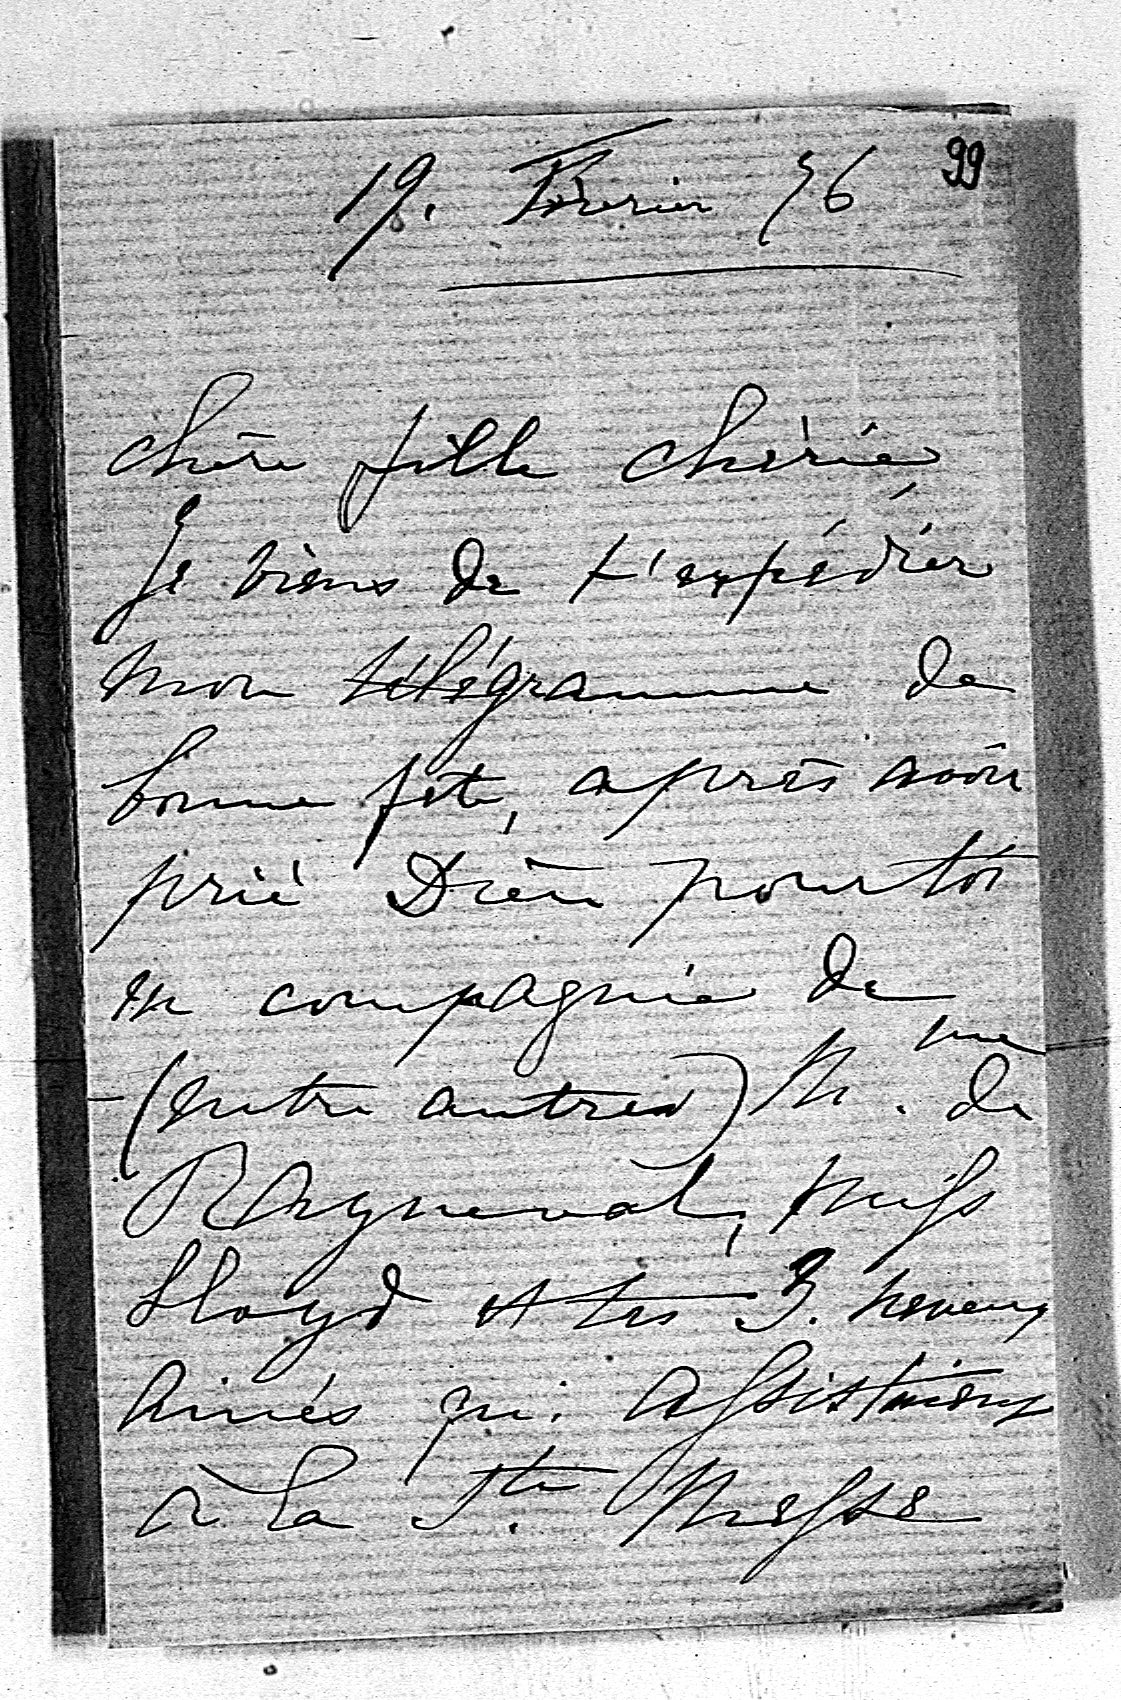 19. Février 76 99
chère fille chérie
Je viens de t'expédier
mon télégramme de
bonne fête, après avoir
prié Dieu pour toi
en compagnie de
(entre autres) Mme. de
Rayneval, Miss
Lloyd et tes 3. neveux
ainés qui assistaient
à la Ste. Messe